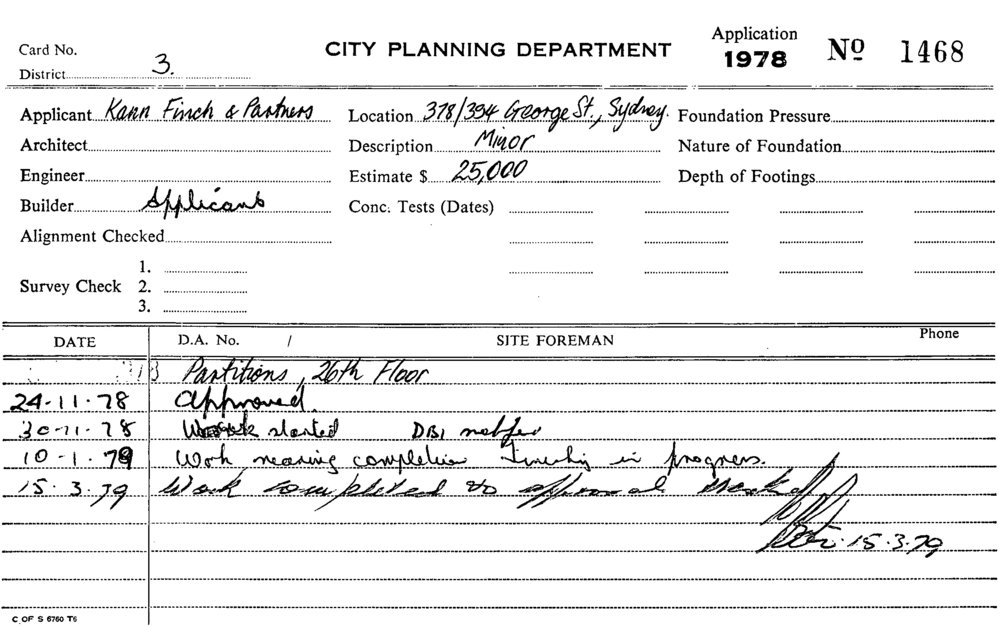 Card No.
District 3.
CITY PLANNING DEPARTMENT
Application
1978 Nº 1468
Applicant Kann Finch & Partners
Location 378/394 George St., Sydney.
Foundation Pressure
Architect
Description Minor
Nature of Foundation
Engineer
Estimate $ 25,000
Depth of Footings
Builder Applicant
Conc. Tests (Dates)
Alignment Checked
Survey Check
1.
2.
3.
DATE D.A. No. / SITE FOREMAN Phone
Partitions, 26th Floor
24-11-78 Approved.
30-11-78 Work started DBI
10-1-79 Work nearing completion in progress.
15.3.79 Work completed to approval
15.3.79
C OF S 6760 T6